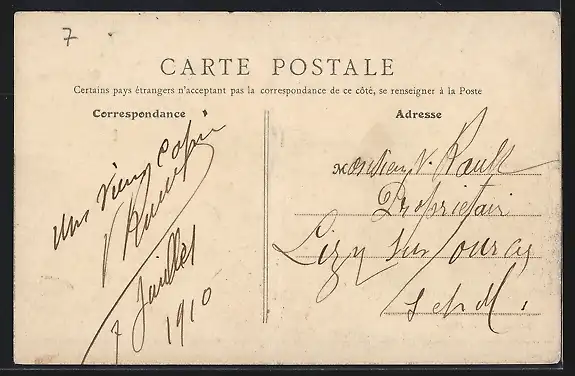 7
CARTE POSTALE
Certains pays étrangers n'acceptant pas la correspondance de ce côté, se renseigner à la Poste
Correspondance
Adresse
Vieux Copin
7 Juillet
1910
Monsieur V. Rault
Proprietair
Lizy sur Ourcq
S et M.